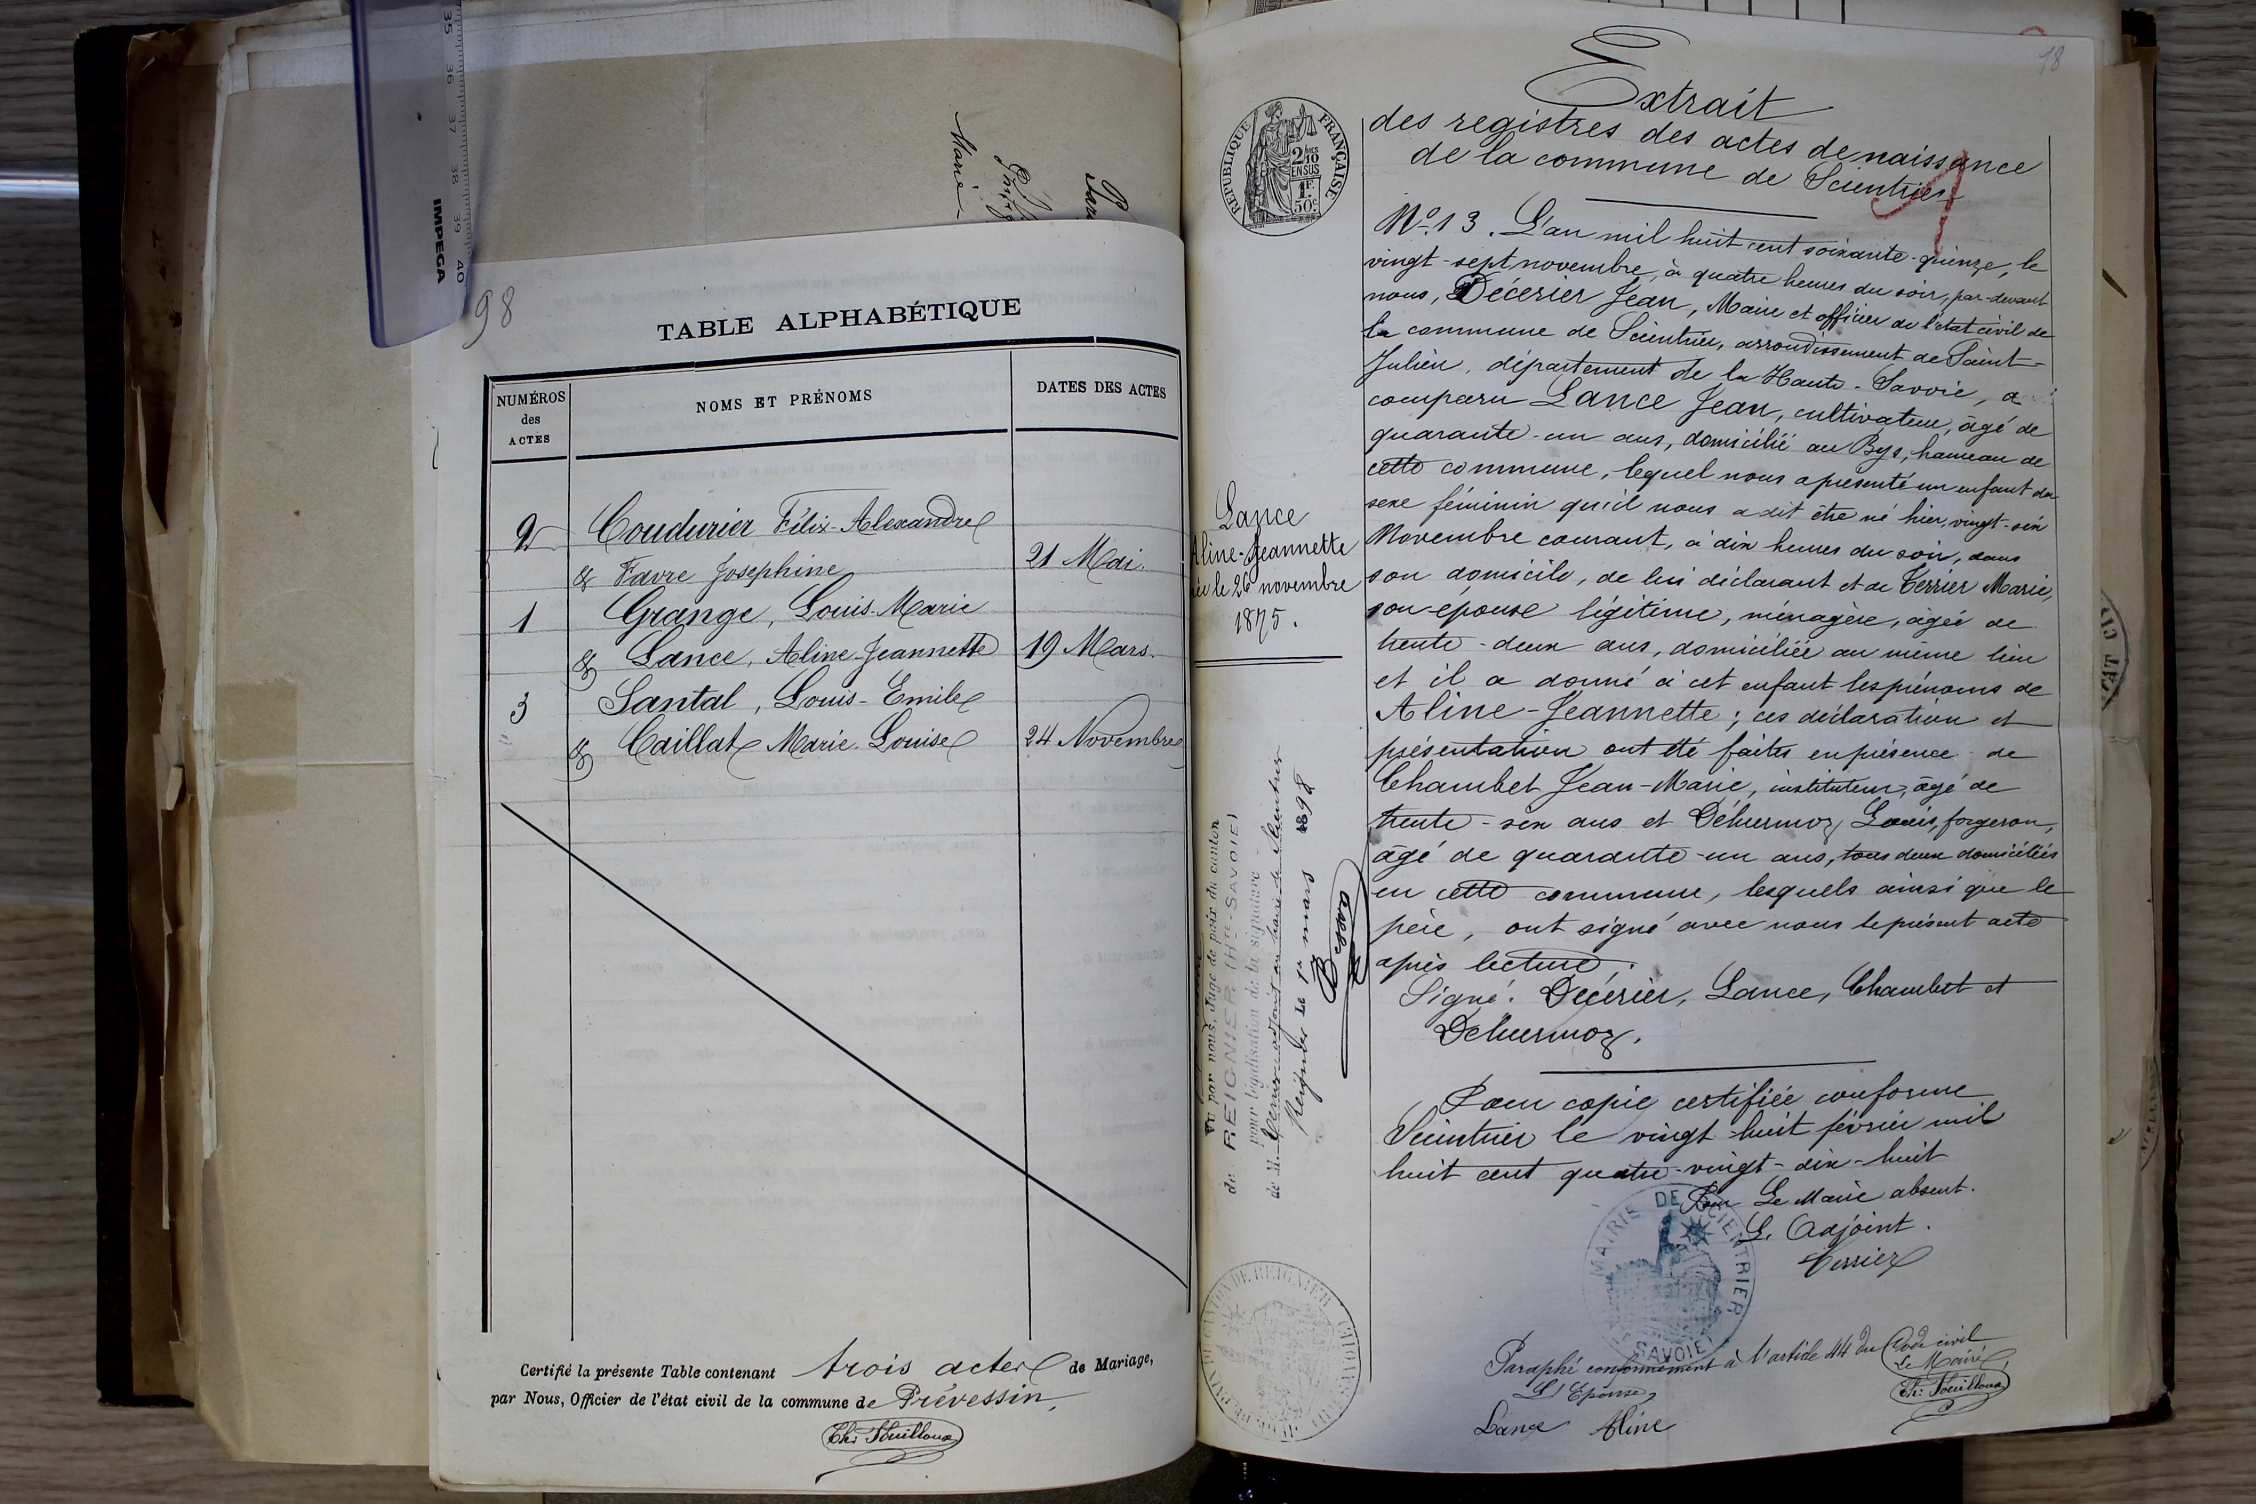 35 36 37 38 39 40
IMPEGA
Marie
98
TABLE ALPHABÉTIQUE
NUMÉROS des ACTES
NOMS ET PRÉNOMS
DATES DES ACTES
2 Coudurier Félix-Alexandre
& Favre Josephine 21 Mai.
1 Grange, Louis-Marie
& Lance, Aline-Jeannette 19 Mars.
3 Santal, Louis-Emile
& Caillat Marie-Louise 24 Novembre
Certifié la présente Table contenant trois actes de Mariage,
par Nous, Officier de l'état civil de la commune de Prévessin,
98
RÉPUBLIQUE FRANÇAISE
2/10 EN SUS
1F. 50c.
Extrait
des registres des actes de naissance
de la commune de Scientrier
Lance
Aline-Jeannette
née le 26 novembre
1875.
No. 13. L'an mil huit cent soixante-quinze, le
vingt-sept novembre, à quatre heures du soir, par-devant
nous, Décerier Jean, Maire et officier de l'état civil de
la commune de Scientrier, arrondissement de Saint-
Julien, département de la Haute-Savoie, a
comparu Lance Jean, cultivateur, âgé de
quarante-un ans, domicilié au Bys, hameau de
cette commune, lequel nous a présenté un enfant du
sexe féminin qu'il nous a dit être né hier, vingt-six
Novembre courant, à dix heures du soir, dans
son domicile, de lui déclarant et de Terrier Marie,
son épouse légitime, ménagère, âgée de
trente-deux ans, domiciliée au même lieu
et il a donné à cet enfant les prénoms de
Aline-Jeannette; ces déclaration et
présentation ont été faites en présence de
Chambet Jean-Marie, instituteur, âgé de
trente-six ans et Déhurmoz Louis, forgeron,
âgé de quarante-un ans, tous deux domiciliés
en cette commune, lesquels ainsi que le
père, ont signé avec nous le présent acte
après lecture.
Signé: Décerier, Lance, Chambet et
Dehurmoz.
Pour copie certifiée conforme
Scientrier le vingt-huit février mil
huit cent quatre-vingt-dix-huit
Pour Le Maire absent.
L'Adjoint.
Terrier
MAIRIE DE SCIENTRIER
SAVOIE
Vu par nous, Juge de paix du canton
de REIGNIER (Hte-SAVOIE)
pour légalisation de la signature
Reignier Le 1er mars 1898
Paraphé conformément à l'article 44 du Code civil
Le Maire,
L'Epouse,
Lance Aline